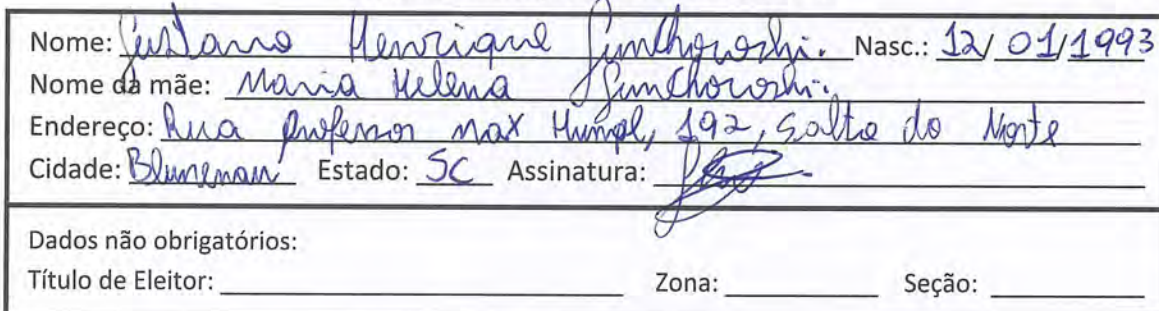 Nome: Gustavo Henrique Nasc.: 12/01/1993
Nome da mãe: Maria Helena
Endereço: Rua professor max Humpl, 192, Salto do Norte
Cidade: Blumenau Estado: SC Assinatura:
Dados não obrigatórios:
Título de Eleitor: Zona: Seção: